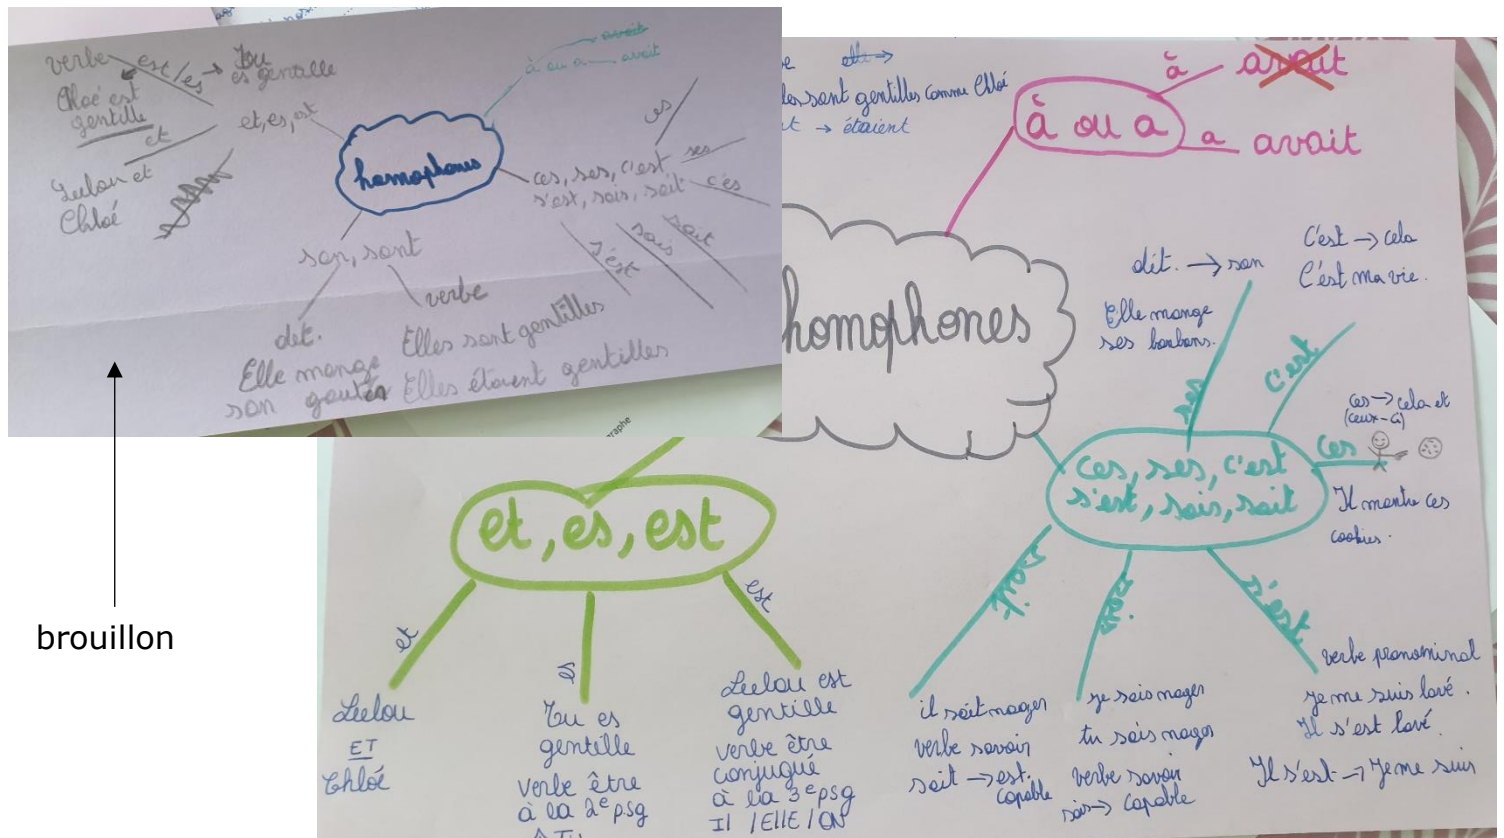 verbe
est/es → Tu
es gentille
Chloé est
gentille
et
Leelou et
Chloé
et, es, est
homophones
avait
à ou a avait
ces
ces, ses, c'est,
s'est, sais, sait
ses
c'es
s'est
sais
sait
son, sont
det.
verbe
Elle mange
son gouter
Elles sont gentilles
Elles étaient gentilles
brouillon
elle →
sont gentilles comme Chloé
→ étaient
à ou a
à avait
a avait
homophones
dét. → son
Elle mange
ses bonbons.
C'est → cela
C'est ma vie.
ses
c'est
ces → cela et
(ceux-ci)
ces
Il montre ces
cookies.
ces, ses, c'est
s'est, sais, sait
sait
sais
s'est
il sait nager
verbe savoir
sait → est
capable
je sais nager
tu sais nager
verbe savoir
sais → capable
verbe pronominal
Je me suis lavé.
Il s'est lavé.
Il s'est → Je me suis
et, es, est
et
es
est
Leelou
ET
Chloé
Tu es
gentille
verbe être
à la 2e psg
Leelou est
gentille
verbe être
conjugué
à la 3e psg
Il / ElLE / ON